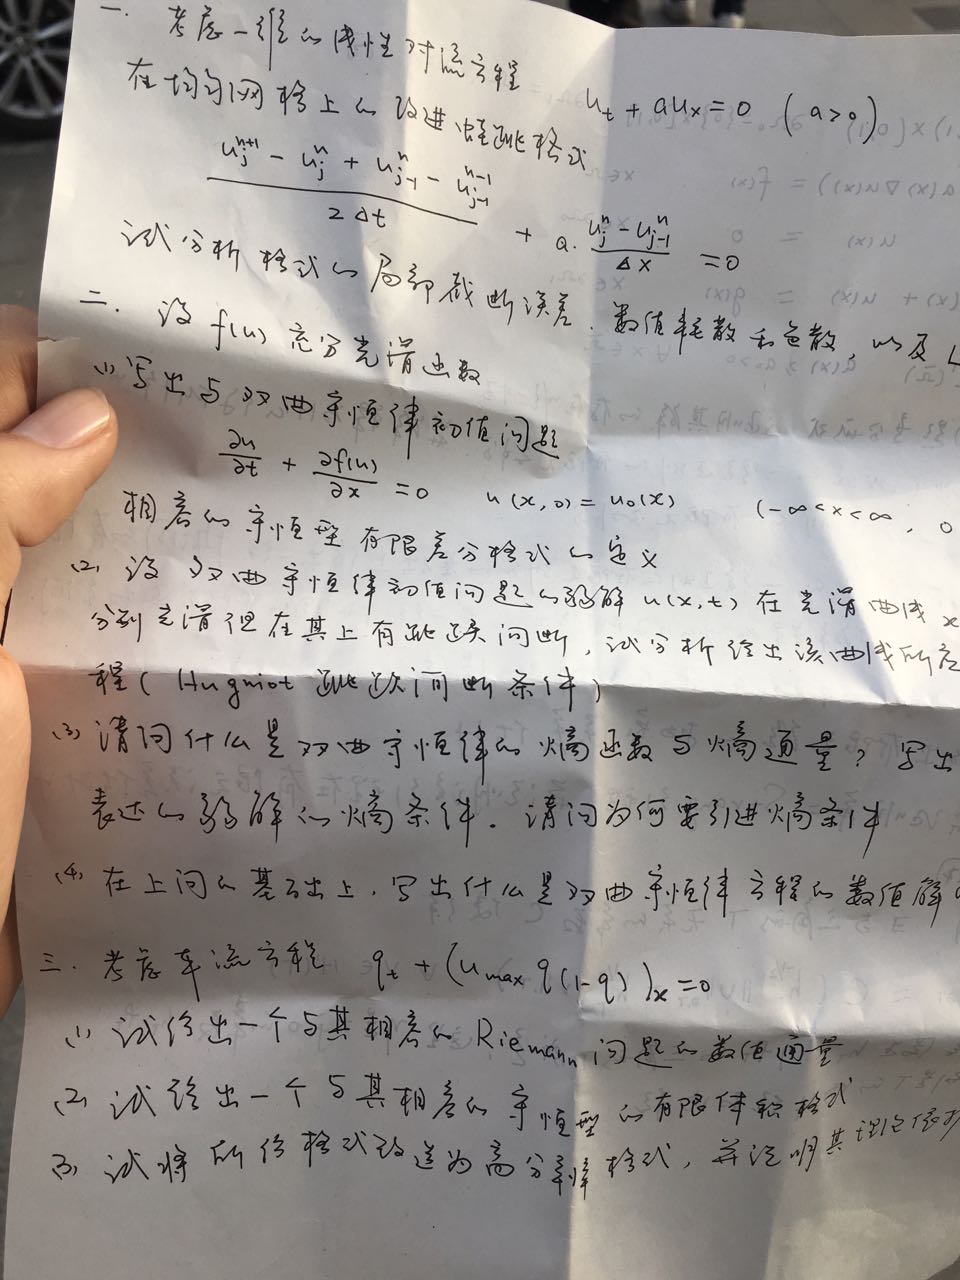 一. 考虑一维的线性对流方程
u_t + au_x = 0 (a>0)
在均匀网格上的改进蛙跳格式
\frac{u_j^{n+1} - u_j^n + u_{j-1}^n - u_{j-1}^{n-1}}{2Δt} + a·\frac{u_j^n - u_{j-1}^n}{Δx} = 0
试分析格式的局部截断误差、数值耗散和色散, 以及
二. 设 f(u) 充分光滑函数
(1) 写出与双曲守恒律初值问题
\frac{∂u}{∂t} + \frac{∂f(u)}{∂x} = 0 u(x,0) = u_0(x) (-∞<x<∞, 0
相容的守恒型有限差分格式的定义
(2) 设双曲守恒律初值问题的弱解 u(x,t) 在光滑曲线 x
分别光滑但在其上有跳跃间断, 试分析给出该曲线所应
程(Hugniot 跳跃间断条件)
(3) 请问什么是双曲守恒律的熵函数与熵通量? 写出
表达的弱解的熵条件. 请问为何要引进熵条件
(4) 在上问的基础上, 写出什么是双曲守恒律方程的数值解
三. 考虑车流方程 q_t + (u_{max} q(1-q))_x = 0
(1) 试给出一个与其相容的 Riemann 问题的数值通量
(2) 试给出一个与其相容的守恒型的有限体积格式
(3) 试将所给格式改造为高分辨率格式, 并说明其理论依据